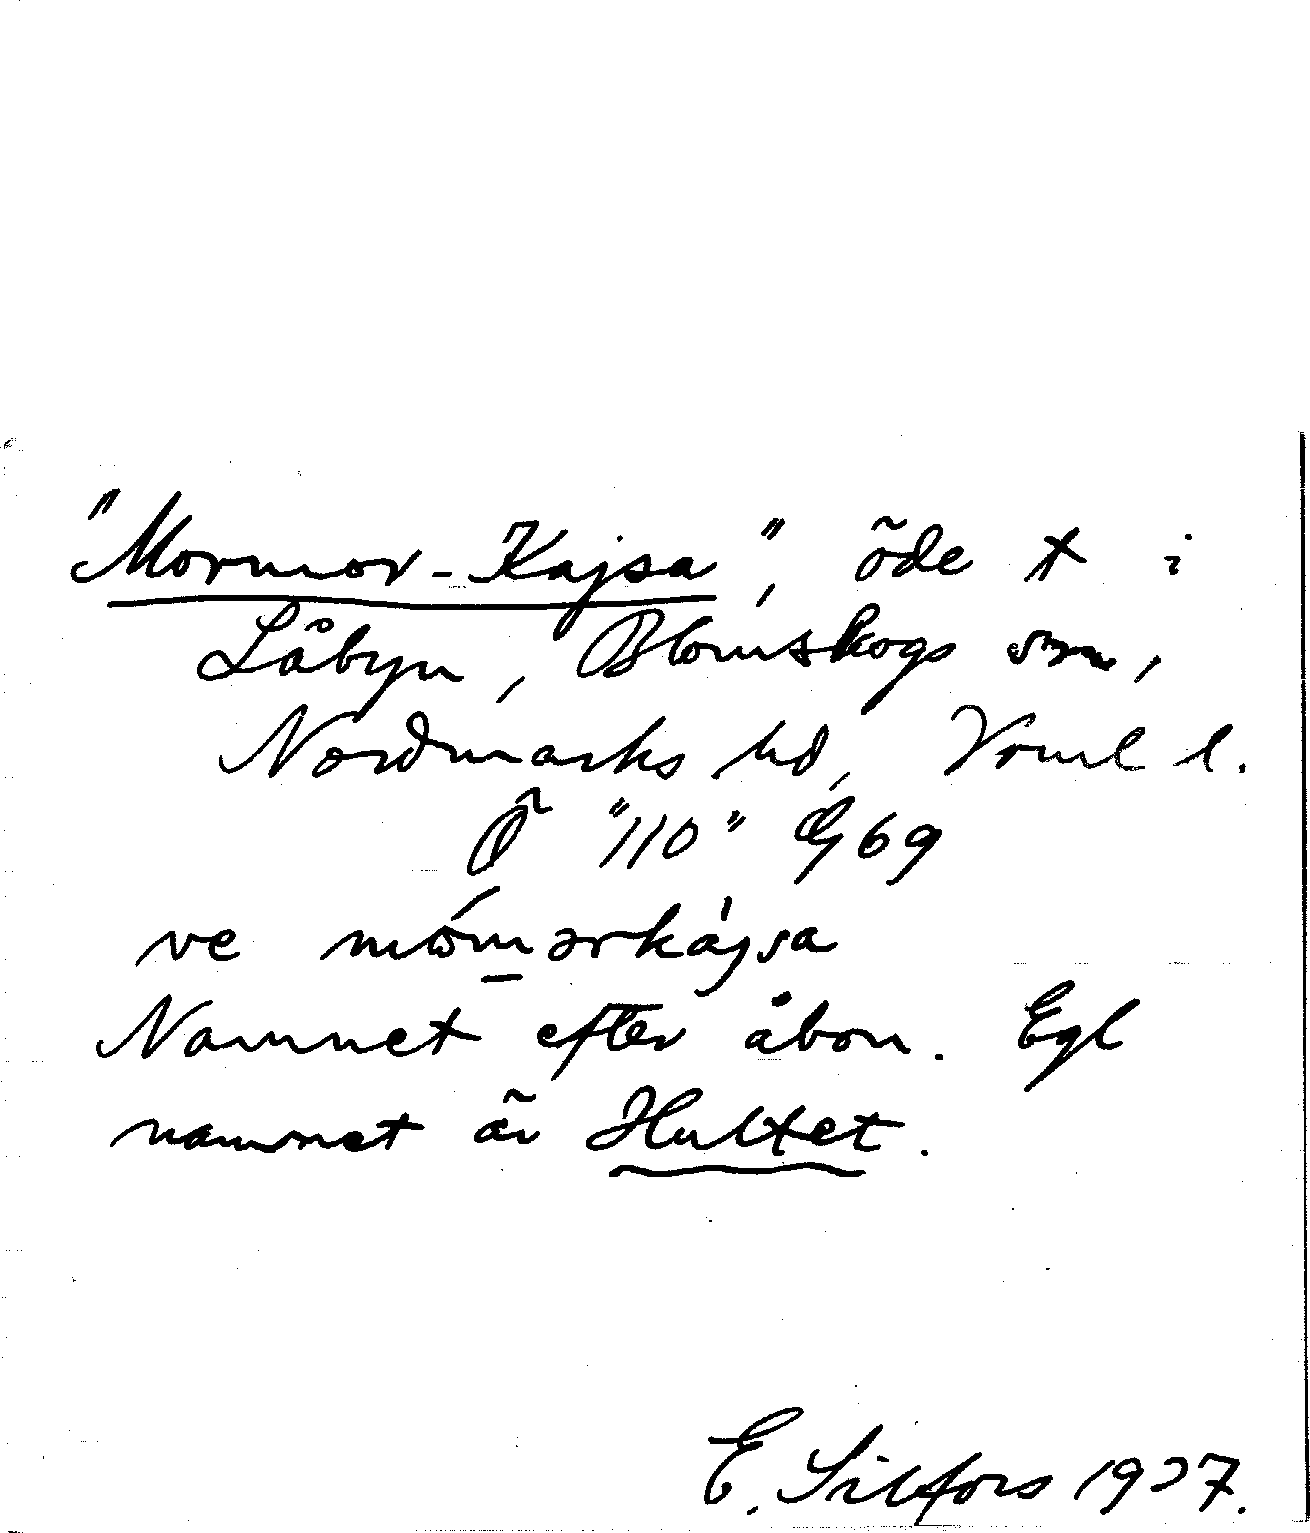 "Mormor-Kajsa", öde t i
Låbyn, Blomskogs sn,
Nordmarks hd, Vrml l.
Ö "110" G 69
ve mómərkájsa
Namnet efter åbon. Egl
namnet är Hultet.
E. Silfors 1927.